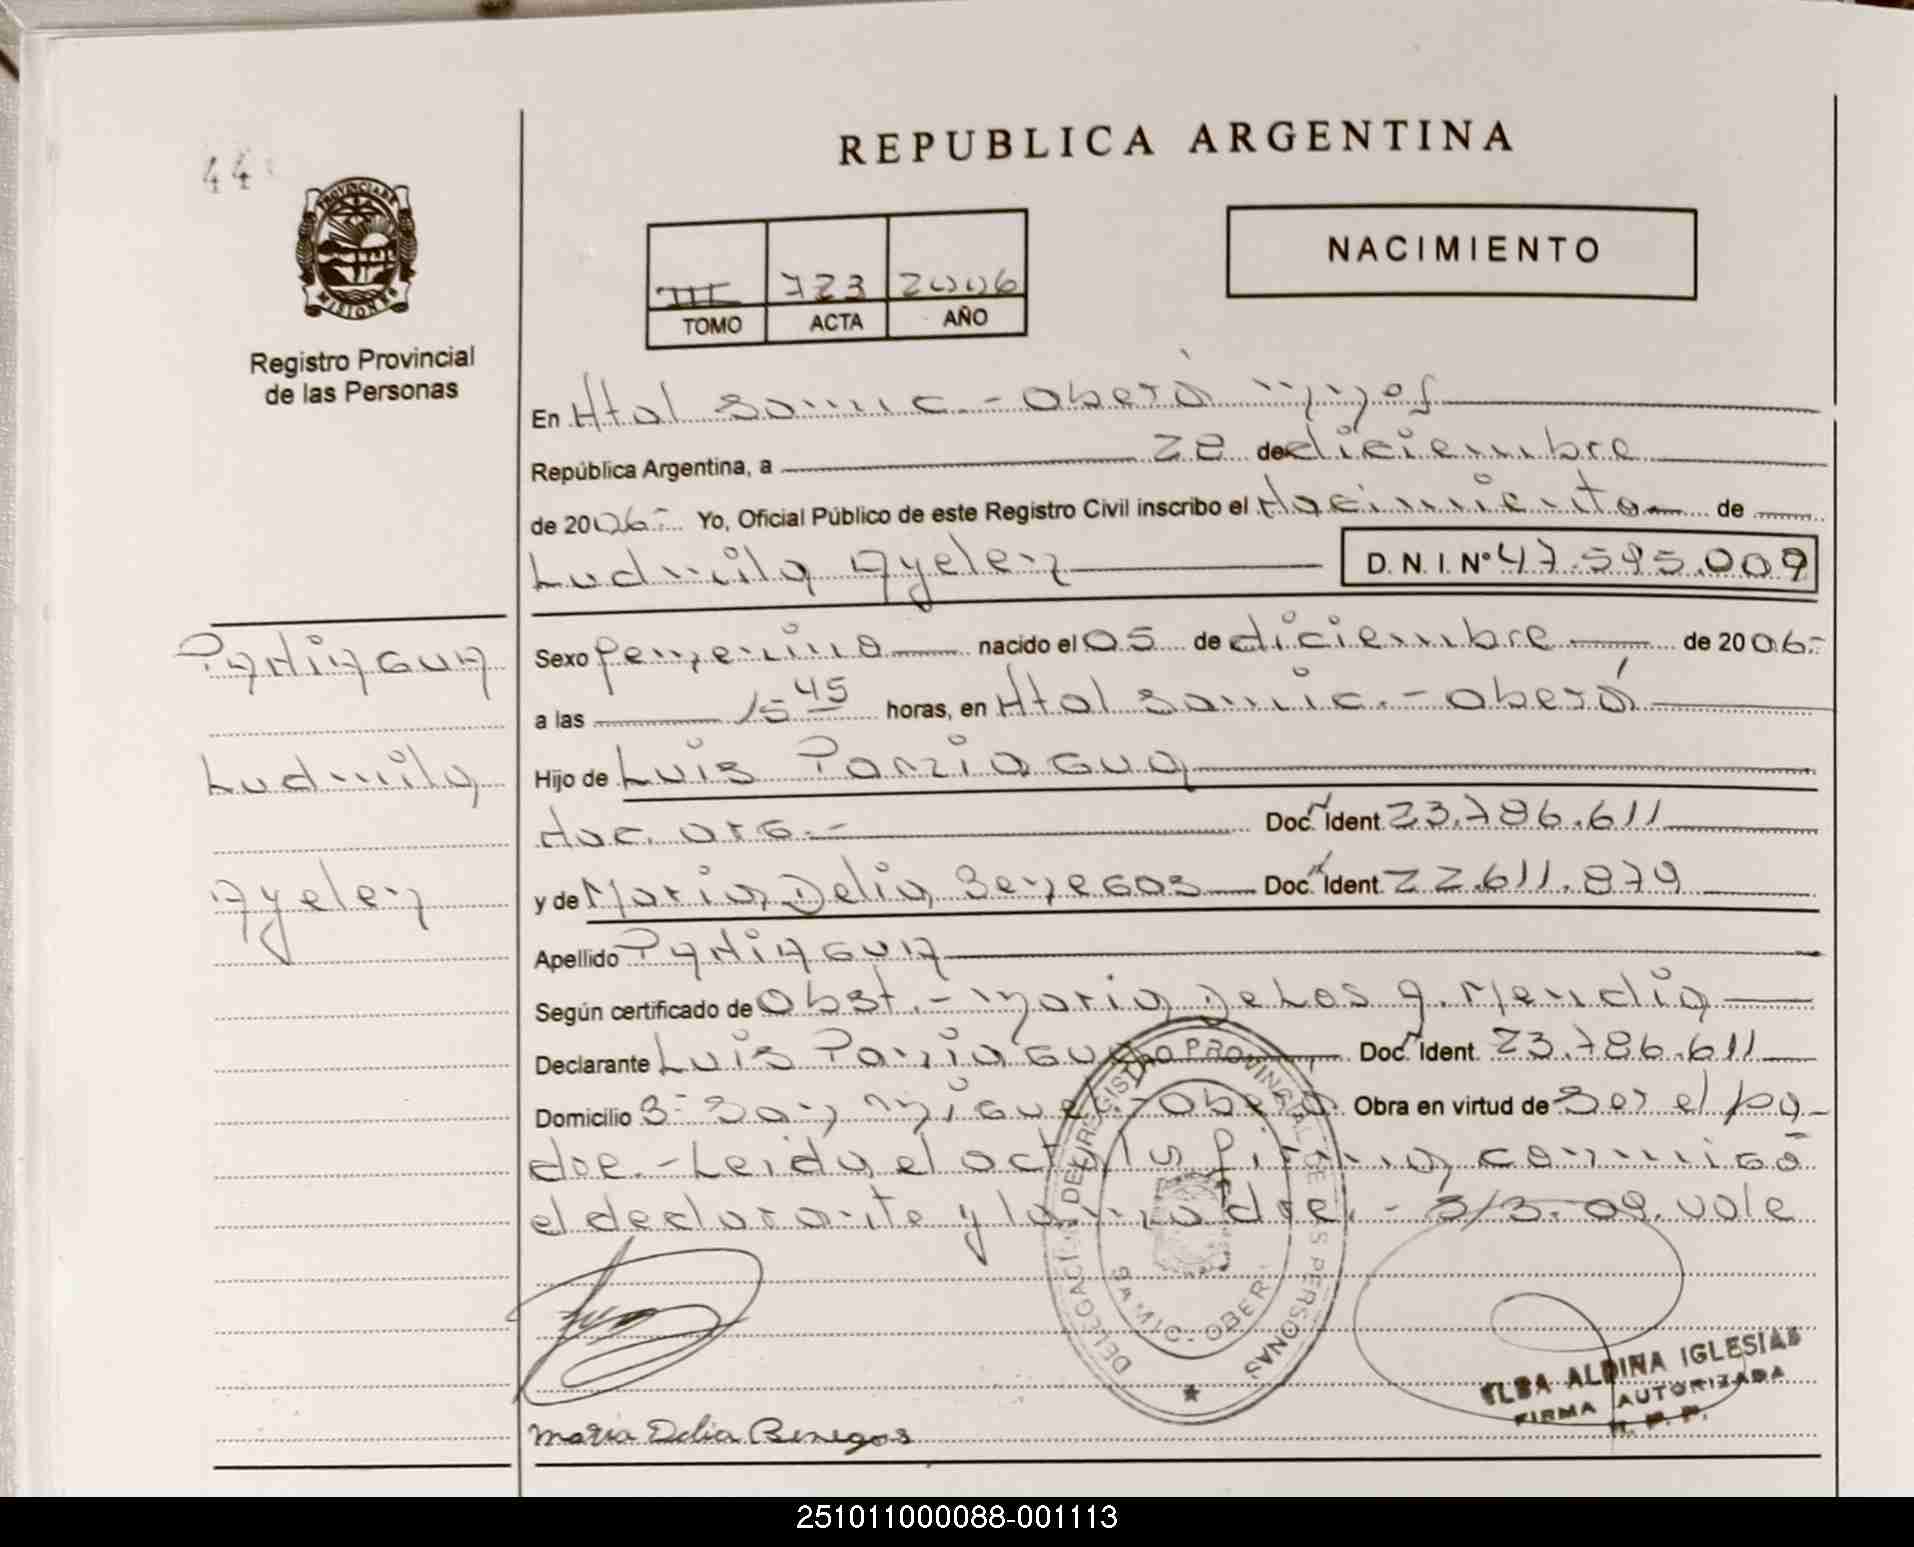 44
REPUBLICA ARGENTINA
PROVINCIA DE
MISIONES
Registro Provincial
de las Personas
III 723 2006
TOMO ACTA AÑO
NACIMIENTO
En Htal Samic.- Oberá Mnes
República Argentina, a 28 de diciembre
de 2006.- Yo, Oficial Público de este Registro Civil inscribo el Nacimiento de
Ludmila Ayelen D. N. I. Nº 47.595.009
PANIAGUA
Ludmila
Ayelen
Sexo femenino nacido el 05 de diciembre de 2006.-
a las 15 45 horas, en Htal Samic.- Oberá
Hijo de Luis Paniagua
Nac. arg.- Doc. Ident. 23.786.611
y de Maria Delia Benegas Doc. Ident. 22.611.879
Apellido PANIAGUA
Según certificado de Obst.- Maria De Los A. Mendia
Declarante Luis Paniagua Doc. Ident. 23.786.611
Domicilio Bº San Miguel.- Oberá Obra en virtud de Ser el pa-
dre.- Leida el acta la firma conmigo
el declarante y la madre.- vale
DELEGACION DEL REGISTRO PROVINCIAL DE LAS PERSONAS
SAMIC - OBERA
ELBA ALDINA IGLESIAS
FIRMA AUTORIZADA
R. P. P.
Maria Delia Benegas
251011000088-001113